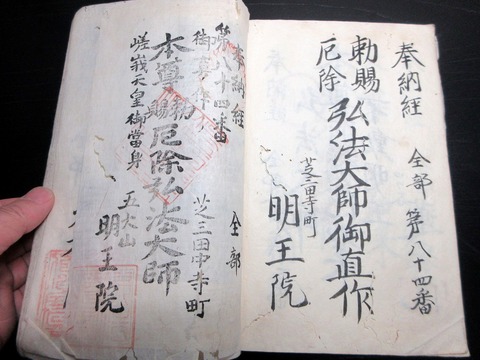 奉納経 全部 第八十四番
勅賜
厄除
弘法大師御直作
芝三田寺町
明王院
奉納経 全部
第八十四番
御府内
芝三田中寺町
本尊
勅賜
厄除弘法大師
嵯峨天皇御當身
五大山
明王院